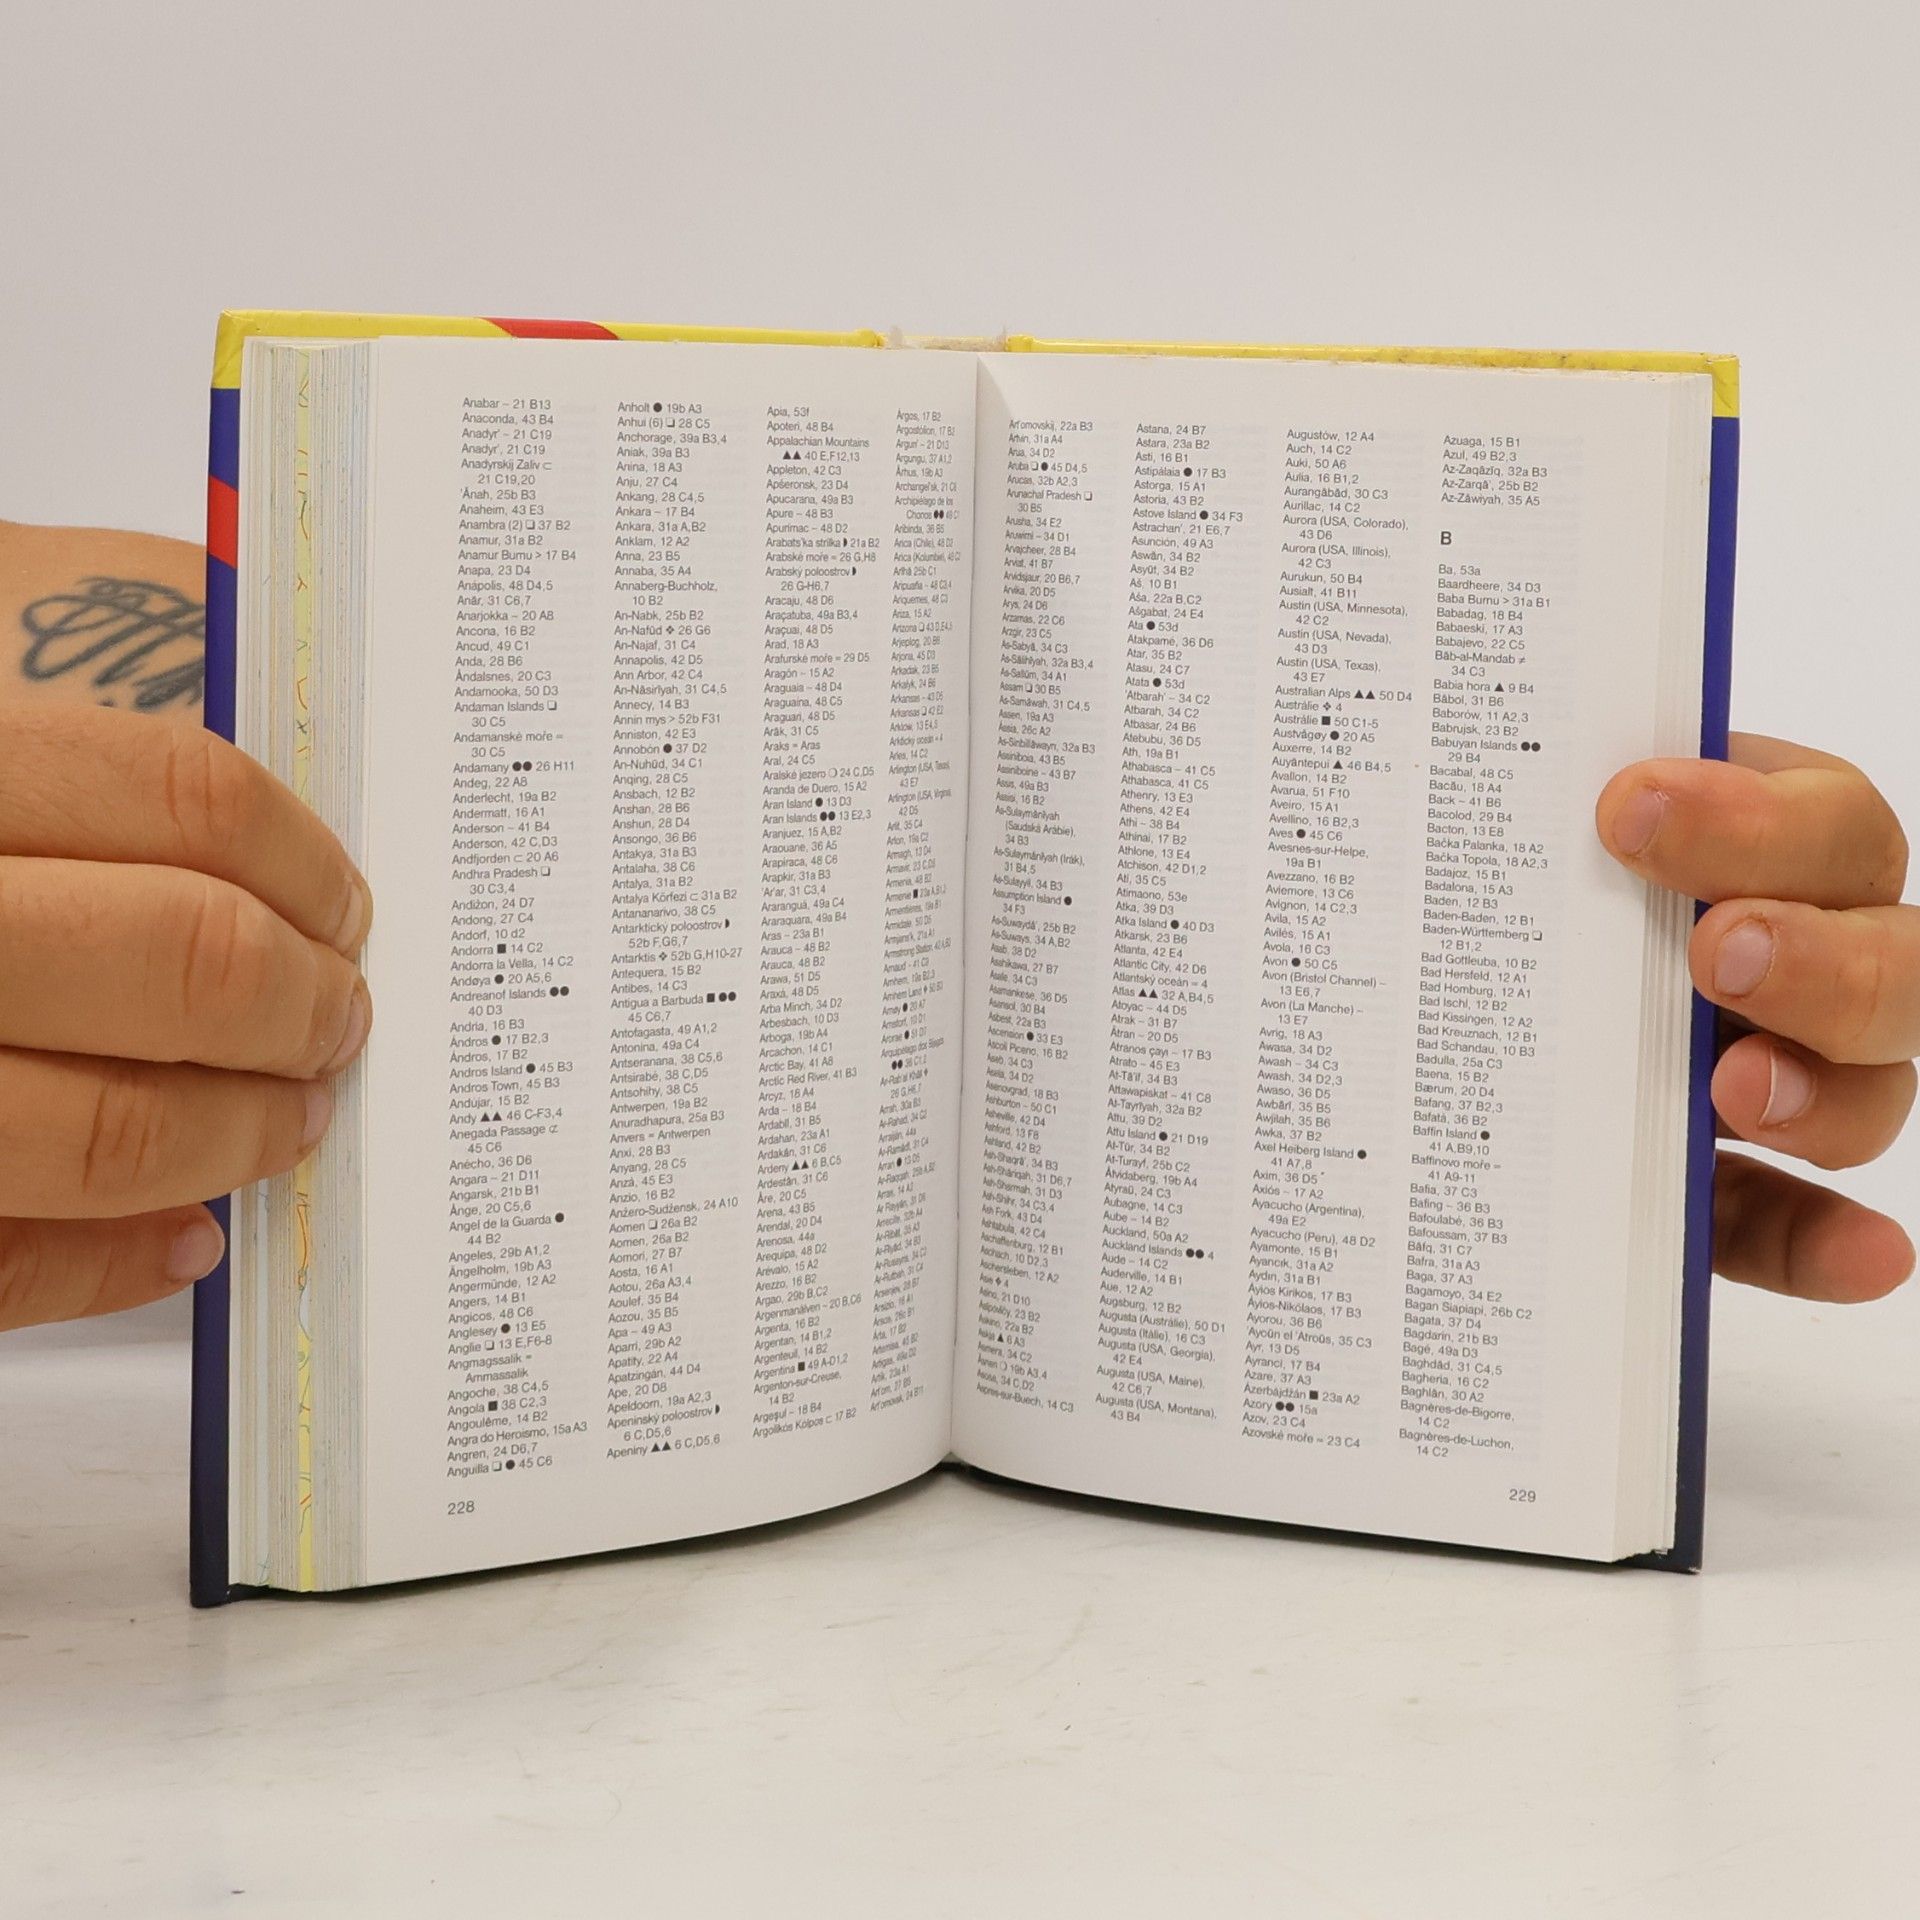 Anabar ~ 21 B13
Anaconda, 43 B4
Anadyr' ~ 21 C19
Anadyr', 21 C19
Anadyrskij Zaliv ⊂
21 C19,20
'Ānah, 25b B3
Anaheim, 43 E3
Anambra (2) ❏ 37 B2
Anamur, 31a B2
Anamur Burnu > 17 B4
Anapa, 23 D4
Anápolis, 48 D4,5
Anār, 31 C6,7
Anarjokka ~ 20 A8
Ancona, 16 B2
Ancud, 49 C1
Anda, 28 B6
Åndalsnes, 20 C3
Andamooka, 50 D3
Andaman Islands ❏
30 C5
Andamanské moře ≈
30 C5
Andamany ●● 26 H11
Andeg, 22 A8
Anderlecht, 19a B2
Andermatt, 16 A1
Anderson ~ 41 B4
Anderson, 42 C,D3
Andfjorden ⊂ 20 A6
Andhra Pradesh ❏
30 C3,4
Andižon, 24 D7
Andong, 27 C4
Andorf, 10 d2
Andorra ■ 14 C2
Andorra la Vella, 14 C2
Andøya ● 20 A5,6
Andreanof Islands ●●
40 D3
Andria, 16 B3
Ándros ● 17 B2,3
Ándros, 17 B2
Andros Island ● 45 B3
Andros Town, 45 B3
Andújar, 15 B2
Andy ▲▲ 46 C-F3,4
Anegada Passage ⊄
45 C6
Anécho, 36 D6
Angara ~ 21 D11
Angarsk, 21b B1
Ånge, 20 C5,6
Angel de la Guarda ●
44 B2
Angeles, 29b A1,2
Ängelholm, 19b A3
Angermünde, 12 A2
Angers, 14 B1
Angicos, 48 C6
Anglesey ● 13 E5
Anglie ❏ 13 E,F6-8
Angmagssalik =
Ammassalik
Angoche, 38 C4,5
Angola ■ 38 C2,3
Angoulême, 14 B2
Angra do Heroismo, 15a A3
Angren, 24 D6,7
Anguilla ❏ ● 45 C6
Anholt ● 19b A3
Anhui (6) ❏ 28 C5
Anchorage, 39a B3,4
Aniak, 39a B3
Anina, 18 A3
Anju, 27 C4
Ankang, 28 C4,5
Ankara ~ 17 B4
Ankara, 31a A,B2
Anklam, 12 A2
Anna, 23 B5
Annaba, 35 A4
Annaberg-Buchholz,
10 B2
An-Nabk, 25b B2
An-Nafūd ❖ 26 G6
An-Najaf, 31 C4
Annapolis, 42 D5
Ann Arbor, 42 C4
An-Nāsirīyah, 31 C4,5
Annecy, 14 B3
Annin mys > 52b F31
Anniston, 42 E3
Annobón ● 37 D2
An-Nuhūd, 34 C1
Anqing, 28 C5
Ansbach, 12 B2
Anshan, 28 B6
Anshun, 28 D4
Ansongo, 36 B6
Antakya, 31a B3
Antalaha, 38 C6
Antalya, 31a B2
Antalya Körfezi ⊂ 31a B2
Antananarivo, 38 C5
Antarktický poloostrov ◗
52b F,G6,7
Antarktis ❖ 52b G,H10-27
Antequera, 15 B2
Antibes, 14 C3
Antigua a Barbuda ■ ●●
45 C6,7
Antofagasta, 49 A1,2
Antonina, 49a C4
Antseranana, 38 C5,6
Antsirabé, 38 C,D5
Antsohihy, 38 C5
Antwerpen, 19a B2
Anuradhapura, 25a B3
Anvers = Antwerpen
Anxi, 28 B3
Anyang, 28 C5
Anzá, 45 E3
Anzio, 16 B2
Anžero-Sudžensk, 24 A10
Aomen ❏ 26a B2
Aomen, 26a B2
Aomori, 27 B7
Aosta, 16 A1
Aotou, 26a A3,4
Aoulef, 35 B4
Aozou, 35 B5
Apa ~ 49 A3
Aparri, 29b A2
Apatity, 22 A4
Apatzingán, 44 D4
Ape, 20 D8
Apeldoorn, 19a A2,3
Apeninský poloostrov ◗
6 C,D5,6
Apeniny ▲▲ 6 C,D5,6
Apia, 53f
Apoteri, 48 B4
Appalachian Mountains
▲▲ 40 E,F12,13
Appleton, 42 C3
Apšeronsk, 23 D4
Apucarana, 49a B3
Apure ~ 48 B3
Apurímac ~ 48 D2
Arabats'ka strilka ◗ 21a B2
Arabské moře ≈ 26 G,H8
Arabský poloostrov ◗
26 G-H6,7
Aracaju, 48 D6
Araçatuba, 49a B3,4
Araçuai, 48 D5
Arad, 18 A3
Arafurské moře ≈ 29 D5
Aragón ~ 15 A2
Araguaia ~ 48 D4
Araguaina, 48 C5
Araguari, 48 D5
Arāk, 31 C5
Araks = Aras
Aral, 24 C5
Aralské jezero ❍ 24 C,D5
Aranda de Duero, 15 A2
Aran Island ● 13 D3
Aran Islands ●● 13 E2,3
Aranjuez, 15 A,B2
Araouane, 36 A5
Arapiraca, 48 C6
Arapkir, 31a B3
'Ar'ar, 31 C3,4
Araranguá, 49a C4
Araraquara, 49a B4
Aras ~ 23a B1
Arauca ~ 48 B2
Arauca, 48 B2
Arawa, 51 D5
Araxá, 48 D5
Arba Minch, 34 D2
Arbesbach, 10 D3
Arboga, 19b A4
Arcachon, 14 C1
Arctic Bay, 41 A8
Arctic Red River, 41 B3
Arcyz, 18 A4
Arda ~ 18 B4
Ardabīl, 31 B5
Ardahan, 23a A1
Ardakān, 31 C6
Ardeny ▲▲ 6 B,C5
Ardestān, 31 C6
Åre, 20 C5
Arena, 43 B5
Arendal, 20 D4
Arenosa, 44a
Arequipa, 48 D2
Arévalo, 15 A2
Arezzo, 16 B2
Argao, 29b B,C2
Argenmanälven ~ 20 B,C6
Argenta, 16 B2
Argentan, 14 B1,2
Argenteuil, 14 B2
Argentina ■ 49 A-D1,2
Argenton-sur-Creuse,
14 B2
Argeşul ~ 18 B4
Argolikós Kólpos ⊂ 17 B2
Árgos, 17 B2
Argostólion, 17 B2
Argun' ~ 21 D13
Argungu, 37 A1,2
Århus, 19b A3
Archangel'sk, 21 C6
Archipiélago de los
Chonos ●● 49 C1
Aribinda, 36 B5
Arica (Chile), 48 D2
Arica (Kolumbie), 48 C2
Arīhā 25b C1
Aripuaña ~ 48 C3,4
Ariquemes, 48 C3
Ariza, 15 A2
Arizona ❏ 43 D,E4,5
Arjeplog, 20 B6
Arjona, 45 D3
Arkadak, 23 B5
Arkalyk, 24 B6
Arkansas ~ 43 D5
Arkansas ❏ 42 E2
Arklow, 13 E4,5
Arktický oceán ≈ 4
Arles, 14 C2
Arlington (USA, Texas),
43 E7
Arlington (USA, Virginia),
42 D5
Arlit, 35 C4
Arlon, 19a C2
Armagh, 13 D4
Armavir, 23 C,D5
Armenia, 48 B2
Arménie ■ 23a A,B1,2
Armentières, 19a B1
Armidale, 50 D5
Armjans'k, 21a A1
Armstrong Station, 42 A,B3
Arnaud ~ 41 C9
Arnhem, 19a B2,3
Arnhem Land ❖ 50 B3
Arnøy ● 20 A7
Arnstorf, 10 D1
Arorae ● 51 D7
Arquipélago dos Bijagós
●● 36 C1,2
Ar-Rab'al Khālī ❖
26 G,H6,7
Arrah, 30a B3
Ar-Rahad, 34 C2
Arraiján, 44a
Ar-Ramādī, 31 C4
Arran ● 13 D5
Ar-Raqqah, 25b A,B2
Arras, 14 A2
Ar Rayyān, 31 D6
Arrecife, 32b A4
Ar-Ribāt, 35 A3
Ar-Riyād, 34 B3
Ar-Rusayris, 34 C2
Ar-Rutbah, 31 C4
Arsenjev, 28 B7
Arsizio, 16 A1
Årsos, 26c B1
Árta, 17 B2
Artemisa, 45 B2
Artigas, 49a D2
Artik, 23a A1
Art'om, 27 B5
Art'omovsk, 24 B11
Art'omovskij, 22a B3
Artvin, 31a A4
Arua, 34 D2
Aruba ❏ ● 45 D4,5
Arucas, 32b A2,3
Arunachal Pradesh ❏
30 B5
Arusha, 34 E2
Aruwimi ~ 34 D1
Arvajcheer, 28 B4
Arviat, 41 B7
Arvidsjaur, 20 B6,7
Arvika, 20 D5
Arys, 24 D6
Arzamas, 22 C6
Arzgir, 23 C5
As-Sabyā, 34 C3
As-Sālihīyah, 32a B3,4
As-Sallūm, 34 A1
Assam ❏ 30 B5
As-Samāwah, 31 C4,5
Assen, 19a A3
Assia, 26c A2
As-Sinbillāwayn, 32a B3
Assiniboia, 43 B5
Assiniboine ~ 43 B7
Assis, 49a B3
Assisi, 16 B2
As-Sulaymānīyah
(Saudská Arábie),
34 B3
As-Sulaymānīyah (Irák),
31 B4,5
As-Sulayyil, 34 B3
Assumption Island ●
34 F3
As-Suwaydā', 25b B2
As-Suways, 34 A,B2
Asab, 38 D2
Asahikawa, 27 B7
Asale, 34 C3
Asamankese, 36 D5
Asansol, 30 B4
Asbest, 22a B3
Ascension ● 33 E3
Ascoli Piceno, 16 B2
Aseb, 34 C3
Asela, 34 D2
Asenovgrad, 18 B3
Ashburton ~ 50 C1
Asheville, 42 D4
Ashford, 13 F8
Ashland, 42 B2
Ash-Shaqrā', 34 B3
Ash-Shāriqah, 31 D6,7
Ash-Sharmah, 31 D3
Ash-Shihr, 34 C3,4
Ash Fork, 43 D4
Ashtabula, 42 C4
Aschaffenburg, 12 B1
Aschach, 10 D2,3
Aschersleben, 12 A2
Asie ❖ 4
Asino, 21 D10
Asipovičy, 23 B2
Askino, 22a B2
Askja ▲ 6 A3
Asmera, 34 C2
Åsnen ❍ 19b A3,4
Asosa, 34 C,D2
Aspres-sur-Buech, 14 C3
Astana, 24 B7
Astara, 23a B2
Asti, 16 B1
Astipálaia ● 17 B3
Astorga, 15 A1
Astoria, 43 B2
Astove Island ● 34 F3
Astrachan', 21 E6,7
Asunción, 49 A3
Aswān, 34 B2
Asyūt, 34 B2
Aš, 10 B1
Aša, 22a B,C2
Ašgabat, 24 E4
Ata ● 53d
Atakpamé, 36 D6
Atar, 35 B2
Atasu, 24 C7
Atata ● 53d
'Atbarah' ~ 34 C2
Atbarah, 34 C2
Atbasar, 24 B6
Atebubu, 36 D5
Ath, 19a B1
Athabasca ~ 41 C5
Athabasca, 41 C5
Athenry, 13 E3
Athens, 42 E4
Athi ~ 38 B4
Athinai, 17 B2
Athlone, 13 E4
Atchison, 42 D1,2
Ati, 35 C5
Atimaono, 53e
Atka, 39 D3
Atka Island ● 40 D3
Atkarsk, 23 B6
Atlanta, 42 E4
Atlantic City, 42 D6
Atlantský oceán ≈ 4
Atlas ▲▲ 32 A,B4,5
Atoyac ~ 44 D5
Atrak ~ 31 B7
Ätran ~ 20 D5
Atranos çayı ~ 17 B3
Atrato ~ 45 E3
At-Tā'if, 34 B3
Attawapiskat ~ 41 C8
At-Tayrīyah, 32a B2
Attu, 39 D2
Attu Island ● 21 D19
At-Tūr, 34 B2
At-Turayf, 25b C2
Åtvidaberg, 19b A4
Atyraū, 24 C3
Aubagne, 14 C3
Aube ~ 14 B2
Auckland, 50a A2
Auckland Islands ●● 4
Aude ~ 14 C2
Auderville, 14 B1
Aue, 12 A2
Augsburg, 12 B2
Augusta (Austrálie), 50 D1
Augusta (Itálie), 16 C3
Augusta (USA, Georgia),
42 E4
Augusta (USA, Maine),
42 C6,7
Augusta (USA, Montana),
43 B4
Augustów, 12 A4
Auch, 14 C2
Auki, 50 A6
Aulia, 16 B1,2
Aurangābād, 30 C3
Aurillac, 14 C2
Aurora (USA, Colorado),
43 D6
Aurora (USA, Illinois),
42 C3
Aurukun, 50 B4
Ausialt, 41 B11
Austin (USA, Minnesota),
42 C2
Austin (USA, Nevada),
43 D3
Austin (USA, Texas),
43 E7
Australian Alps ▲▲ 50 D4
Austrálie ❖ 4
Austrálie ■ 50 C1-5
Austvågøy ● 20 A5
Auxerre, 14 B2
Auyântepui ▲ 46 B4,5
Avallon, 14 B2
Avarua, 51 F10
Aveiro, 15 A1
Avellino, 16 B2,3
Aves ● 45 C6
Avesnes-sur-Helpe,
19a B1
Avezzano, 16 B2
Aviemore, 13 C6
Avignon, 14 C2,3
Avila, 15 A2
Avilés, 15 A1
Avola, 16 C3
Avon ● 50 C5
Avon (Bristol Channel) ~
13 E6,7
Avon (La Manche) ~
13 E7
Avrig, 18 A3
Awasa, 34 D2
Awash ~ 34 C3
Awash, 34 D2,3
Awaso, 36 D5
Awbārī, 35 B5
Awjilah, 35 B6
Awka, 37 B2
Axel Heiberg Island ●
41 A7,8
Axim, 36 D5
Axiós ~ 17 A2
Ayacucho (Argentina),
49a E2
Ayacucho (Peru), 48 D2
Ayamonte, 15 B1
Ayancık, 31a A2
Aydın, 31a B1
Áyios Kírikos, 17 B3
Áyios-Nikólaos, 17 B3
Ayorou, 36 B6
'Aycūn el 'Atroûs, 35 C3
Ayr, 13 D5
Ayranci, 17 B4
Azare, 37 A3
Ázerbájdžán ■ 23a A2
Azory ●● 15a
Azov, 23 C4
Azovské moře ≈ 23 C4
Azuaga, 15 B1
Azul, 49 B2,3
Az-Zaqāzīq, 32a B3
Az-Zarqā', 25b B2
Az-Zāwiyah, 35 A5
B
Ba, 53a
Baardheere, 34 D3
Baba Burnu > 31a B1
Babadag, 18 B4
Babaeski, 17 A3
Babajevo, 22 C5
Bāb-al-Mandab ≠
34 C3
Babia hora ▲ 9 B4
Bābol, 31 B6
Baborów, 11 A2,3
Babrujsk, 23 B2
Babuyan Islands ●●
29 B4
Bacabal, 48 C5
Bacău, 18 A4
Back ~ 41 B6
Bacolod, 29 B4
Bacton, 13 E8
Bačka Palanka, 18 A2
Bačka Topola, 18 A2,3
Badajoz, 15 B1
Badalona, 15 A3
Baden, 12 B3
Baden-Baden, 12 B1
Baden-Württemberg ❏
12 B1,2
Bad Gottleuba, 10 B2
Bad Hersfeld, 12 A1
Bad Homburg, 12 A1
Bad Ischl, 12 B2
Bad Kissingen, 12 A2
Bad Kreuznach, 12 B1
Bad Schandau, 10 B3
Badulla, 25a C3
Baena, 15 B2
Bærum, 20 D4
Bafang, 37 B2,3
Bafatà, 36 B2
Baffin Island ●
41 A,B9,10
Baffinovo moře ≈
41 A9-11
Bafia, 37 C3
Bafing ~ 36 B3
Bafoulabé, 36 B3
Bafoussam, 37 B3
Bāfq, 31 C7
Bafra, 31a A3
Baga, 37 A3
Bagamoyo, 34 E2
Bagan Siapiapi, 26b C2
Bagata, 37 D4
Bagdarin, 21b B3
Bagé, 49a D3
Baghdād, 31 C4,5
Bagheria, 16 C2
Baghlān, 30 A2
Bagnères-de-Bigorre,
14 C2
Bagnères-de-Luchon,
14 C2
228
229